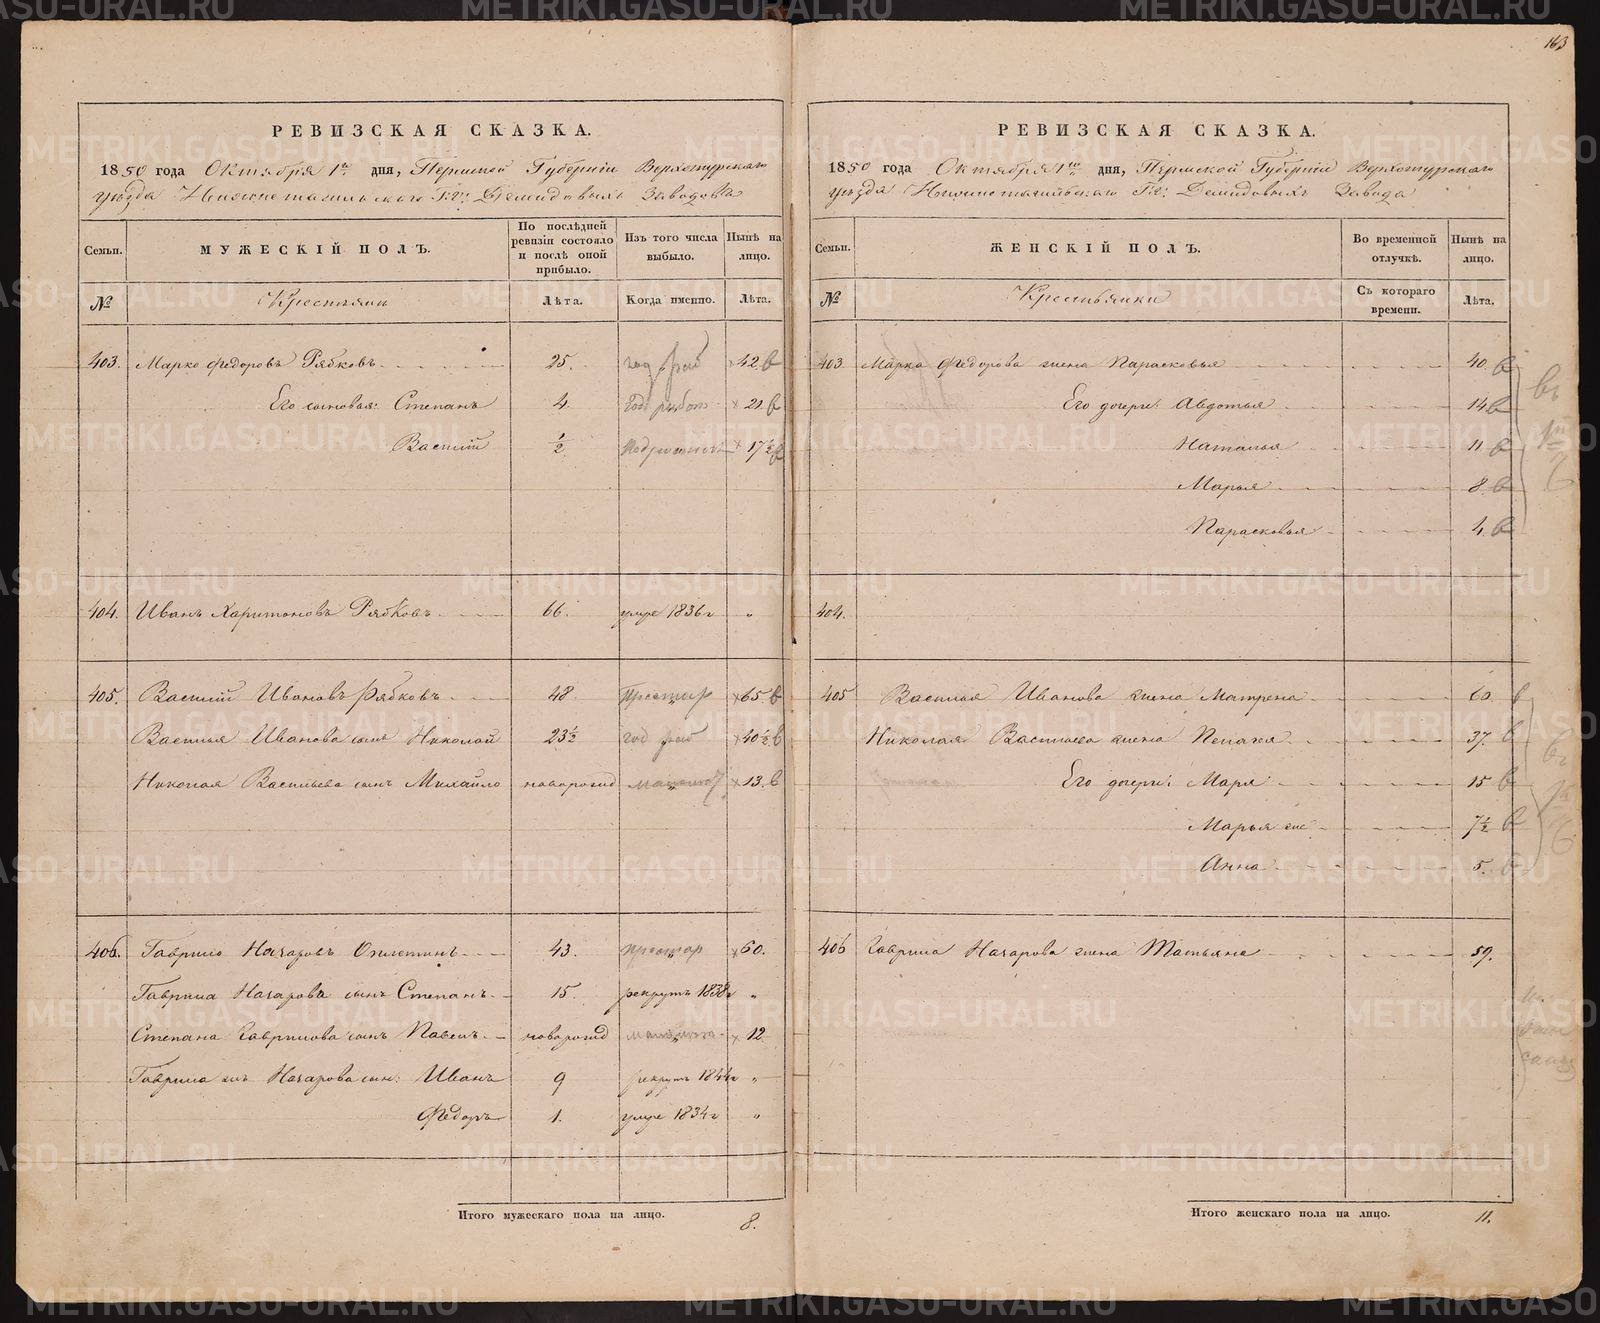 163
РЕВИЗСКАЯ СКАЗКА.
1850 года Октября 1го дня, Пермской Губерніи Верхотурскаго
уѣзда Нижнетагильскаго Г.г. Демидовыхъ Заводовъ
Семьи.
МУЖЕСКІЙ ПОЛЪ.
По послѣдней ревизіи состояло и послѣ оной прибыло.
Изъ того числа выбыло.
Нынѣ на лицо.
№ Крестьяни Лѣта. Когда именно. Лѣта.
403. Марко Федоровъ Рябковъ 25. год. раб × 42. в
Его сыновья: Степанъ 4. × 21. в
Василій ½ × 17½ в
404. Иванъ Харитоновъ Рябковъ 66. умре 1836 г „
405. Василій Ивановъ Рябковъ 48 Престар × 65. в
Василья Иванова сынъ Николай 23½ год раб × 40½ в
Николая Васильева сынъ Михайло новорожд × 13. в
406. Гаврило Назаровъ Оплетинъ 43. престар × 60.
Гаврила Назарова сынъ Степанъ 15. рекрутъ 1838 г „
Степана Гаврилова сынъ Павелъ новорожд × 12
Гаврила Назарова сын: Иванъ 9 рекрутъ 1844 г „
Федоръ 1. умре 1834 г „
Итого мужескаго пола на лицо. 8.
РЕВИЗСКАЯ СКАЗКА.
1850 года Октября 1го дня, Пермской Губерніи Верхотурскаго
уѣзда Нижнетагильскаго Г.г. Демидовыхъ Завода
Семьи.
ЖЕНСКІЙ ПОЛЪ.
Во временной отлучкѣ.
Нынѣ на лицо.
№ Крестьянки Съ котораго времени. Лѣта.
403 Марка Федорова жена Парасковья 40. в
Его дочери: Авдотья 14 в
Наталья 11 в
Марья 8 в
Парасковья 4 в
404.
405 Василья Иванова жена Матрена 60. в
Николая Васильева жена Пелагея 37. в
Его дочери: Марья 15 в
Марья же 7½ в
Анна 5. в
406 Гаврила Назарова жена Татьяна 59.
Итого женскаго пола на лицо. 11.
METRIKI.GASO-URAL.RU